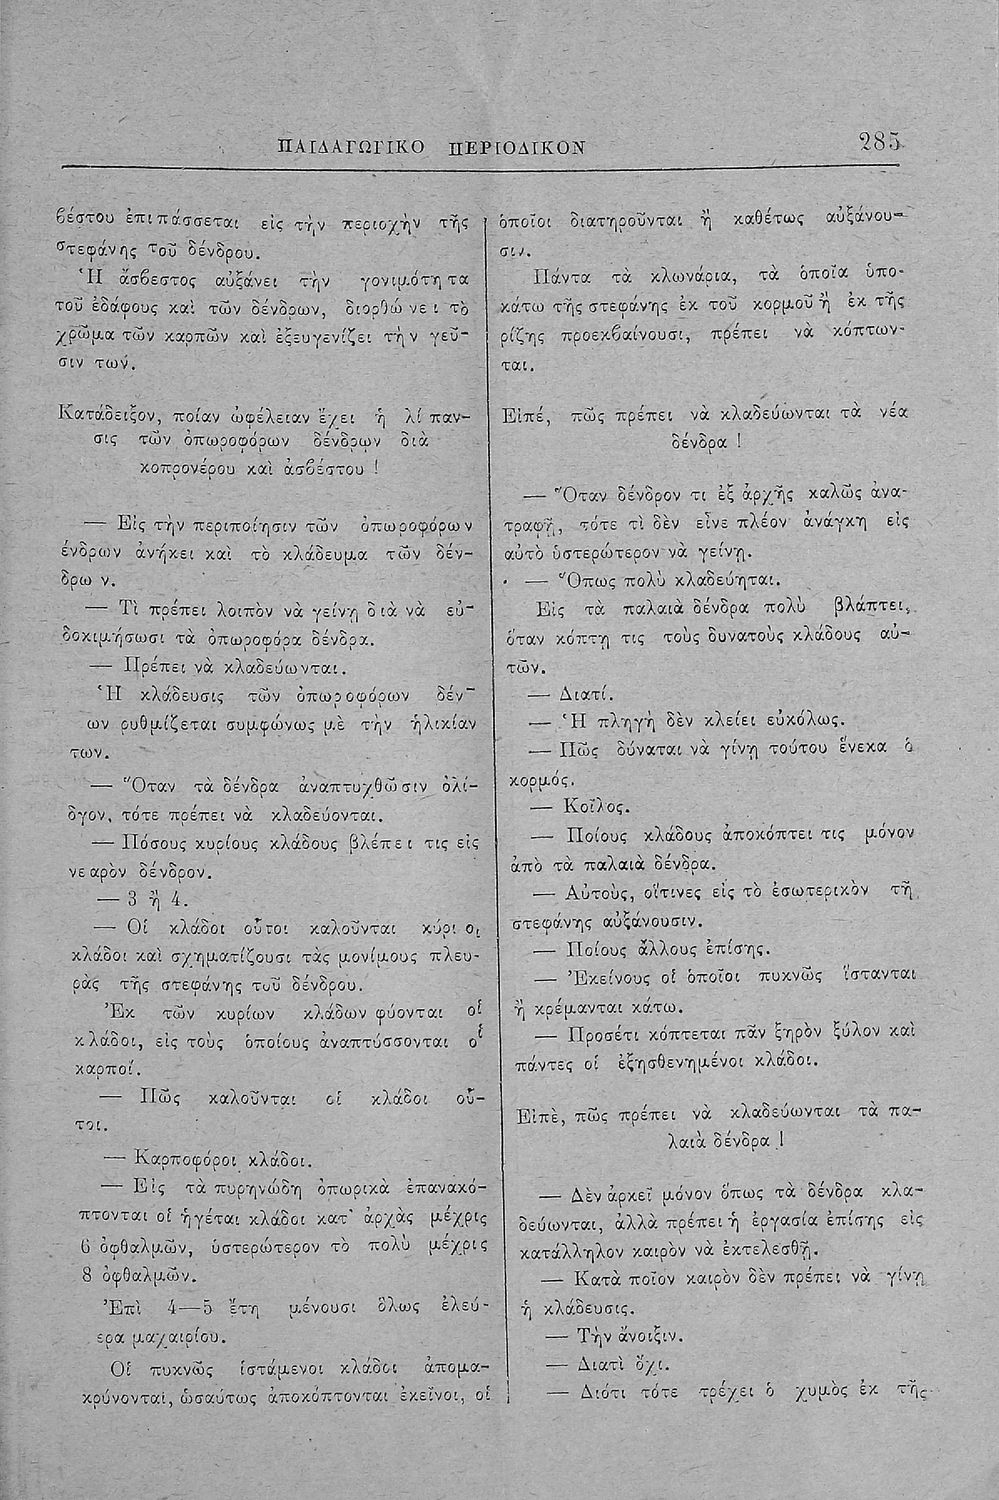 ΠΑΙΔΑΓΩΓΙΚΟ ΠΕΡΙΟΔΙΚΟΝ 285
βέστου ἐπιπάσσεται εἰς τὴν περιοχὴν τῆς
στεφάνης τοῦ δένδρου.
Ἡ ἄσβεστος αὐξάνει τὴν γονιμότητα
τοῦ ἐδάφους καὶ τῶν δένδρων, διορθώνει τὸ
χρῶμα τῶν καρπῶν καὶ ἐξευγενίζει τὴν γεῦ-
σιν των.
Κατάδειξον, ποίαν ὠφέλειαν ἔχει ἡ λίπαν-
σις τῶν ὀπωροφόρων δένδρων διὰ
κοπρονέρου καὶ ἀσβέστου !
— Εἰς τὴν περιποίησιν τῶν ὀπωροφόρων
ένδρων ἀνήκει καὶ τὸ κλάδευμα τῶν δέν-
δρων.
— Τὶ πρέπει λοιπὸν νὰ γείνῃ διὰ νὰ εὐ-
δοκιμήσωσι τὰ ὀπωροφόρα δένδρα.
— Πρέπει νὰ κλαδεύωνται.
Ἡ κλάδευσις τῶν ὀπωροφόρων δέν-
ων ρυθμίζεται συμφώνως μὲ τὴν ἡλικίαν
των.
— Ὅταν τὰ δένδρα ἀναπτυχθῶσιν ὀλί-
δγον, τότε πρέπει νὰ κλαδεύονται.
— Πόσους κυρίους κλάδους βλέπει τις εἰς
νεαρὸν δένδρον.
— 3 ἢ 4.
— Οἱ κλάδοι οὗτοι καλοῦνται κύριοι
κλάδοι καὶ σχηματίζουσι τὰς μονίμους πλευ-
ρὰς τῆς στεφάνης τοῦ δένδρου.
Ἐκ τῶν κυρίων κλάδων φύονται οἱ
κλάδοι, εἰς τοὺς ὁποίους ἀναπτύσσονται οἱ
καρποί.
— Πῶς καλοῦνται οἱ κλάδοι οὗ-
τοι.
— Καρποφόροι κλάδοι.
— Εἰς τὰ πυρηνώδη ὀπωρικὰ ἐπανακό-
πτονται οἱ ἡγέται κλάδοι κατ' ἀρχὰς μέχρις
6 ὀφθαλμῶν, ὑστερώτερον τὸ πολὺ μέχρις
8 ὀφθαλμῶν.
Ἐπὶ 4—5 ἔτη μένουσι ὅλως ἐλεύ-
ερα μαχαιρίου.
Οἱ πυκνῶς ἱστάμενοι κλάδοι ἀπομα-
κρύνονται, ὡσαύτως ἀποκόπτονται ἐκεῖνοι, οἱ
ὁποῖοι διατηροῦνται ἢ καθέτως αὐξάνου-
σιν.
Πάντα τὰ κλωνάρια, τὰ ὁποῖα ὑπο-
κάτω τῆς στεφάνης ἐκ τοῦ κορμοῦ ἢ ἐκ τῆς
ρίζης προεκβαίνουσι, πρέπει νὰ κόπτων-
ται.
Εἰπέ, πῶς πρέπει νὰ κλαδεύωνται τὰ νέα
δένδρα !
— Ὅταν δένδρον τι ἐξ ἀρχῆς καλῶς ἀνα-
τραφῇ, τότε τὶ δὲν εἶνε πλέον ἀνάγκη εἰς
αὐτὸ ὑστερώτερον νὰ γείνῃ.
— Ὅπως πολὺ κλαδεύηται.
Εἰς τὰ παλαιὰ δένδρα πολὺ βλάπτει,
ὅταν κόπτῃ τις τοὺς δυνατοὺς κλάδους αὐ-
τῶν.
— Διατί.
— Ἡ πληγὴ δὲν κλείει εὐκόλως.
— Πῶς δύναται νὰ γίνῃ τούτου ἕνεκα ὁ
κορμός.
— Κοῖλος.
— Ποίους κλάδους ἀποκόπτει τις μόνον
ἀπὸ τὰ παλαιὰ δένδρα.
— Αὐτούς, οἵτινες εἰς τὸ ἐσωτερικὸν τῆ
στεφάνης αὐξάνουσιν.
— Ποίους ἄλλους ἐπίσης.
— Ἐκείνους οἱ ὁποῖοι πυκνῶς ἵστανται
ἢ κρέμανται κάτω.
— Προσέτι κόπτεται πᾶν ξηρὸν ξύλον καὶ
πάντες οἱ ἐξησθενημένοι κλάδοι.
Εἰπὲ, πῶς πρέπει νὰ κλαδεύωνται τὰ πα-
λαιὰ δένδρα !
— Δὲν ἀρκεῖ μόνον ὅπως τὰ δένδρα κλα-
δεύωνται, ἀλλὰ πρέπει ἡ ἐργασία ἐπίσης εἰς
κατάλληλον καιρὸν νὰ ἐκτελεσθῇ.
— Κατὰ ποῖον καιρὸν δὲν πρέπει νὰ γίνῃ
ἡ κλάδευσις.
— Τὴν ἄνοιξιν.
— Διατὶ ὄχι.
— Διότι τότε τρέχει ὁ χυμὸς ἐκ τῆς